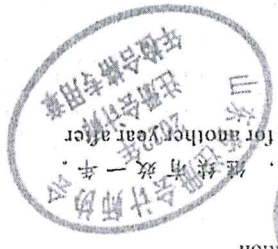 继续有效一年。
for another year after
山东省注册会计师协会
注册会计师
年检合格专用章